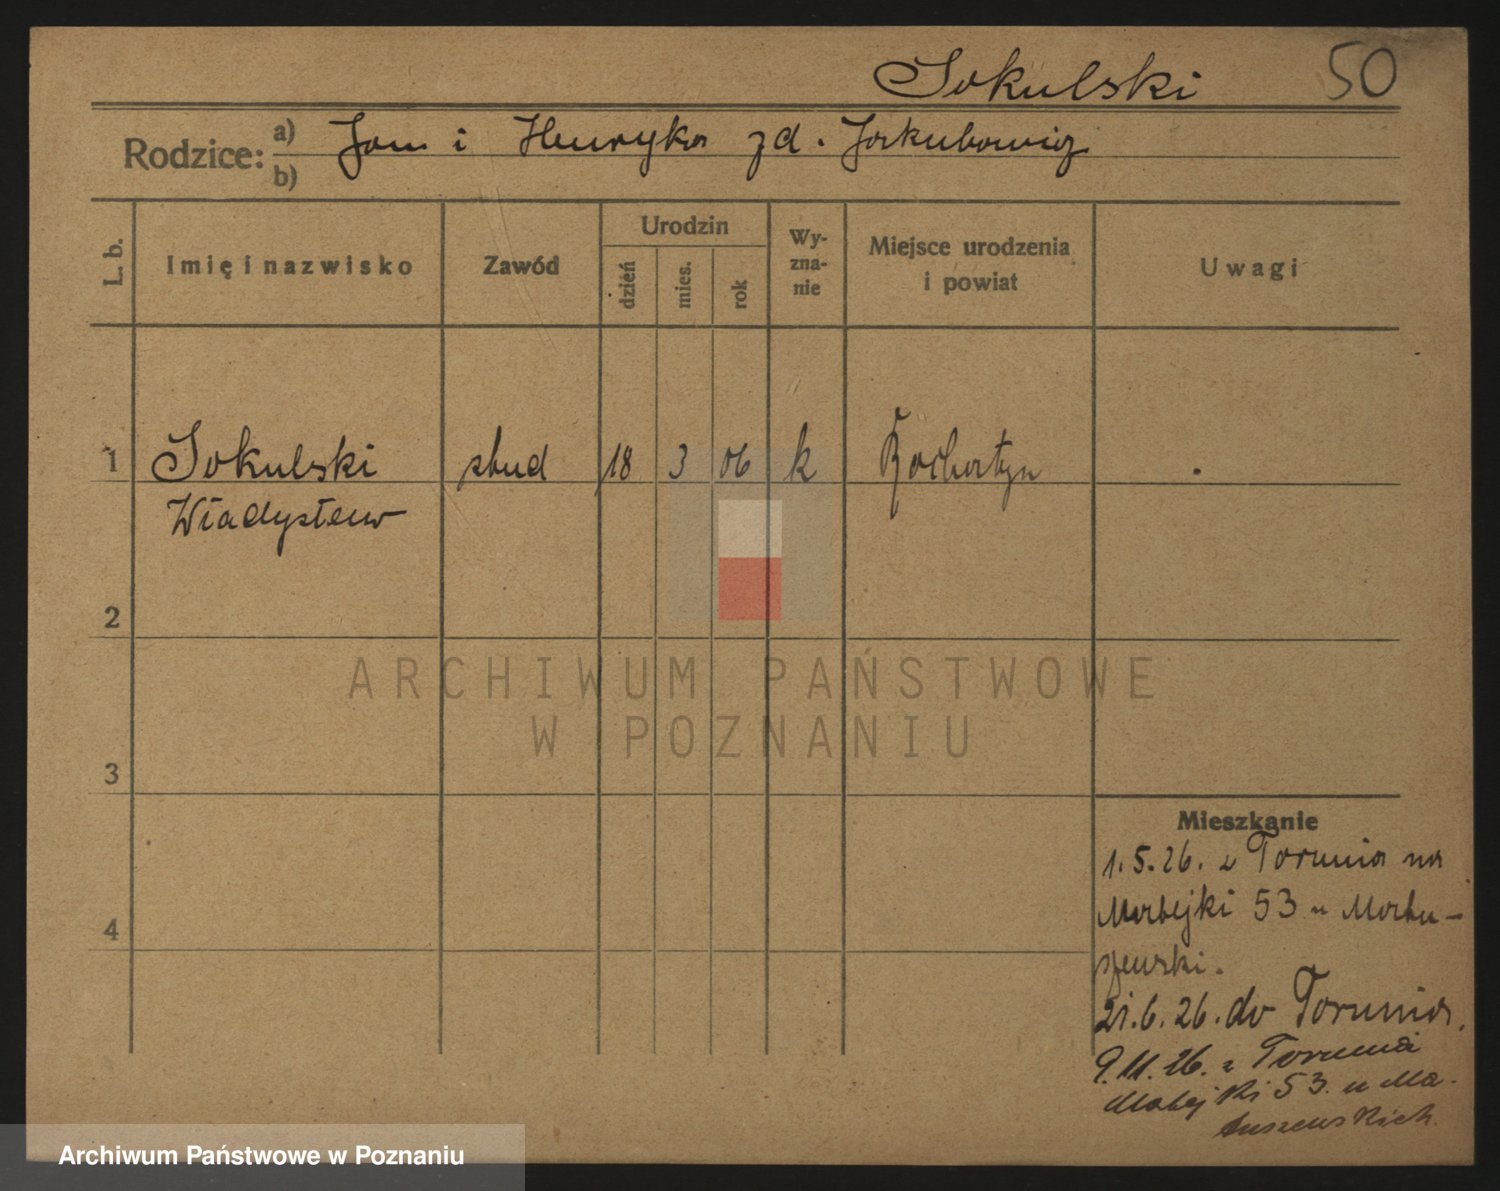 Sokulski 50
Rodzice: a) Jan i Henryka zd. Jakubowicz
b)
L. b.
Imię i nazwisko
Zawód
Urodzin
dzień
mies.
rok
Wy-
zna-
nie
Miejsce urodzenia
i powiat
Uwagi
1 Sokulski stud 18 3 06 k
Władysław
2
3
4
ARCHIWUM PAŃSTWOWE
W POZNANIU
Mieszkanie
1.5.26. z Torunia na
Matejki 53 u Matu-
szewski.
21.6.26. do Torunia.
9.11.26. z Torunia
Matejki 53. u Ma-
tuszewskich.
Archiwum Państwowe w Poznaniu